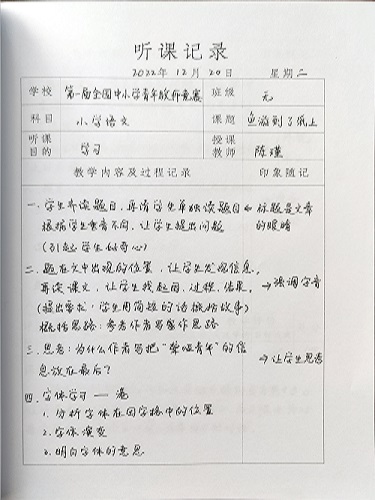 听课记录
2022年12月20日 星期二
学校 第一届全国中小学青年教师竞赛 班级 无
科目 小学语文 课题 鱼游到了纸上
听课目的 学习 授课教师 陈瑾
教学内容及过程记录 印象随记
一.学生齐读题目,再请学生单独读题目 ← 标题是文章
根据学生重音不同,让学生提出问题 的眼睛
(引起学生好奇心)
二.题在文中出现的位置,让学生发现信息,
再读课文,让学生找起因,过程,结果, → 强调字音
(提出要求:学生用简短的话概括故事)
概括思路:参考作者写作思路
三.思考:为什么作者写把“聋哑青年”的信 → 让学生思考
息放在最后?
四.字体学习 — 港
1.分析字体在田字格中的位置
2.字体演变
3.明白字体的意思